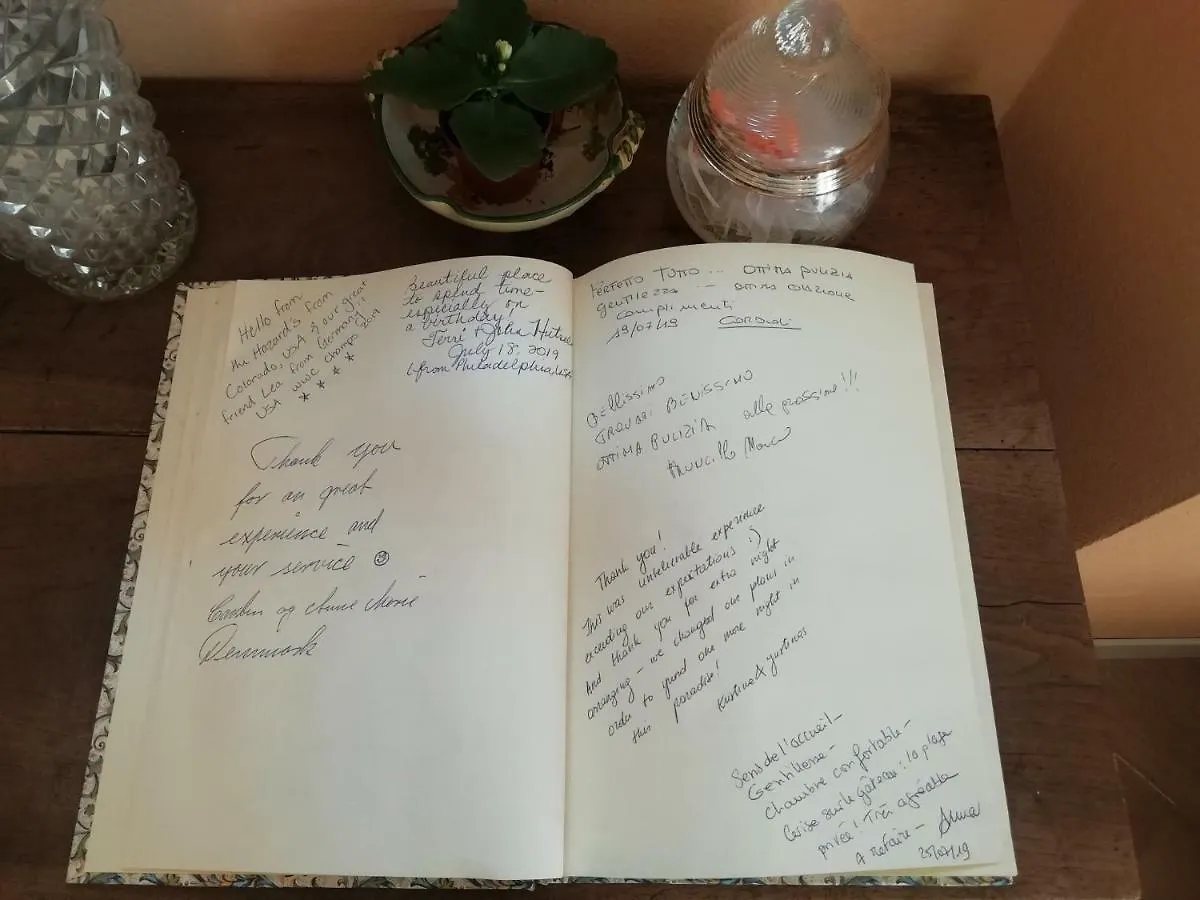 Hello from
the Hazard's from
Colorado, USA & our great
friend Lea from Germany!!
USA WWC champs 2019
* * * *
Beautiful place
to spend time -
especially on
a birthday!
Terri & John
July 18, 2019
(from Philadelphia, USA
Thank you
for an great
experience and
your service ☺
og Anne Marie
Denmark
PERFETTO TUTTO ... OTTIMA PULIZIA
gentilezza ... OTTIMA COLAZIONE
complimenti
19/07/19
BELLISSIMO
TROVATI BENISSIMO
OTTIMA PULIZIA alla prossima!!!
Marco
Thank you!
This was unbelievable experience
exceeding our expectations :)
And thank you for extra night
arranging - we changed our plans in
order to spend one more night in
this paradise!
Kristina & Justinas
Sens de l'accueil -
Gentillesse -
Chambre confortable -
Cerise sur le gâteau : la plage
privée ! Très agréable
A refaire - Anna
25/07/19